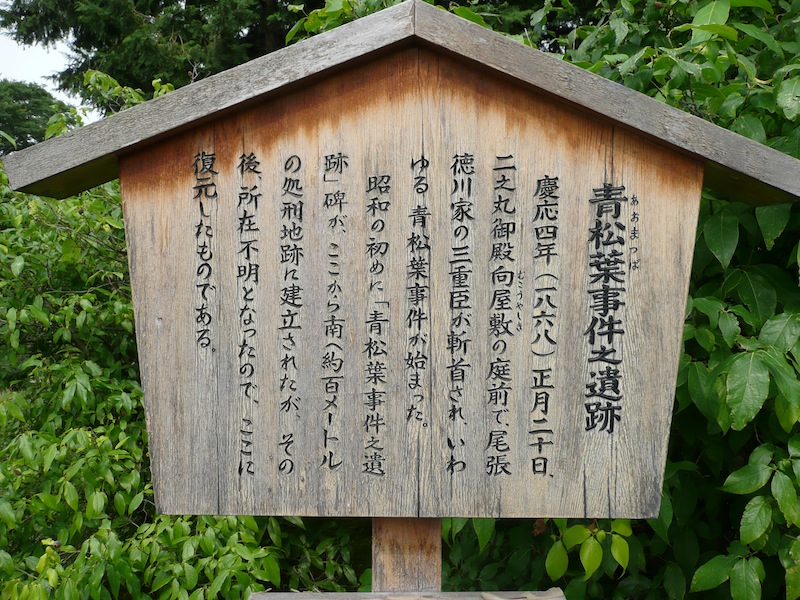 青松葉事件之遺跡
あおまつば
慶応四年(一八六八)正月二十日、
二之丸御殿向屋敷の庭前で、尾張
むこうやしき
徳川家の三重臣が斬首され、いわ
ゆる青松葉事件が始まった。
昭和の初めに「青松葉事件之遺
跡」碑が、ここから南へ約百メートル
の処刑地跡に建立されたが、その
後所在不明となったので、ここに
復元したものである。